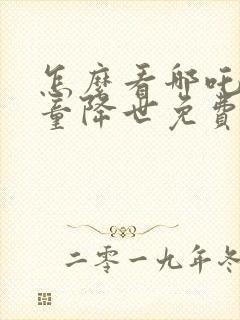 怎麼看哪吒
童降世免費
二零一九年冬